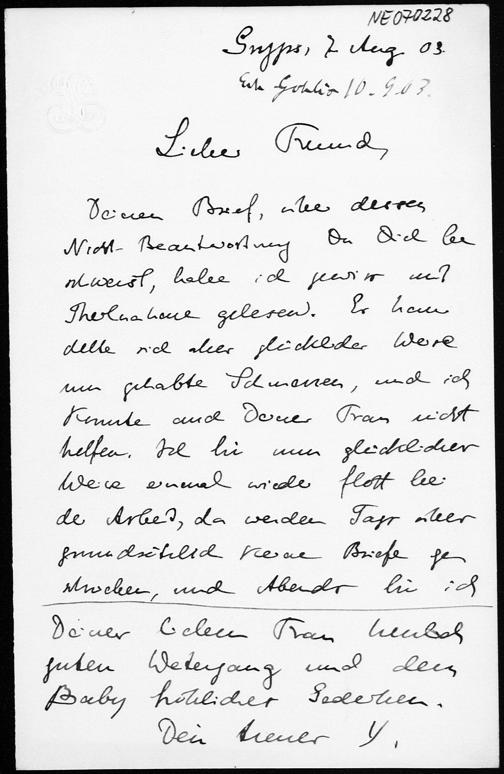 NE070228
Gryps, 7 Aug 03.
10.9.03.
Lieber Freund,
Deinen Brief, über dessen
Nicht-Beantwortung Du Dich be
schwerst, habe ich gewiss mit
Theilnahme gelesen. Es han
delte sich aber glücklicher Weise
um gehabte Schmerzen, und ich
konnte auch Deiner Frau nicht
helfen. Ich bin nun glücklicher
Weise einmal wieder flott bei
der Arbeit, da werden Tags über
grundsätzlich keine Briefe ge
schrieben, und Abends bin ich
Deiner lieben Frau herzlich
guten Weitergang und dem
Baby fröhliches Gedeihen.
Dein treuer Y.